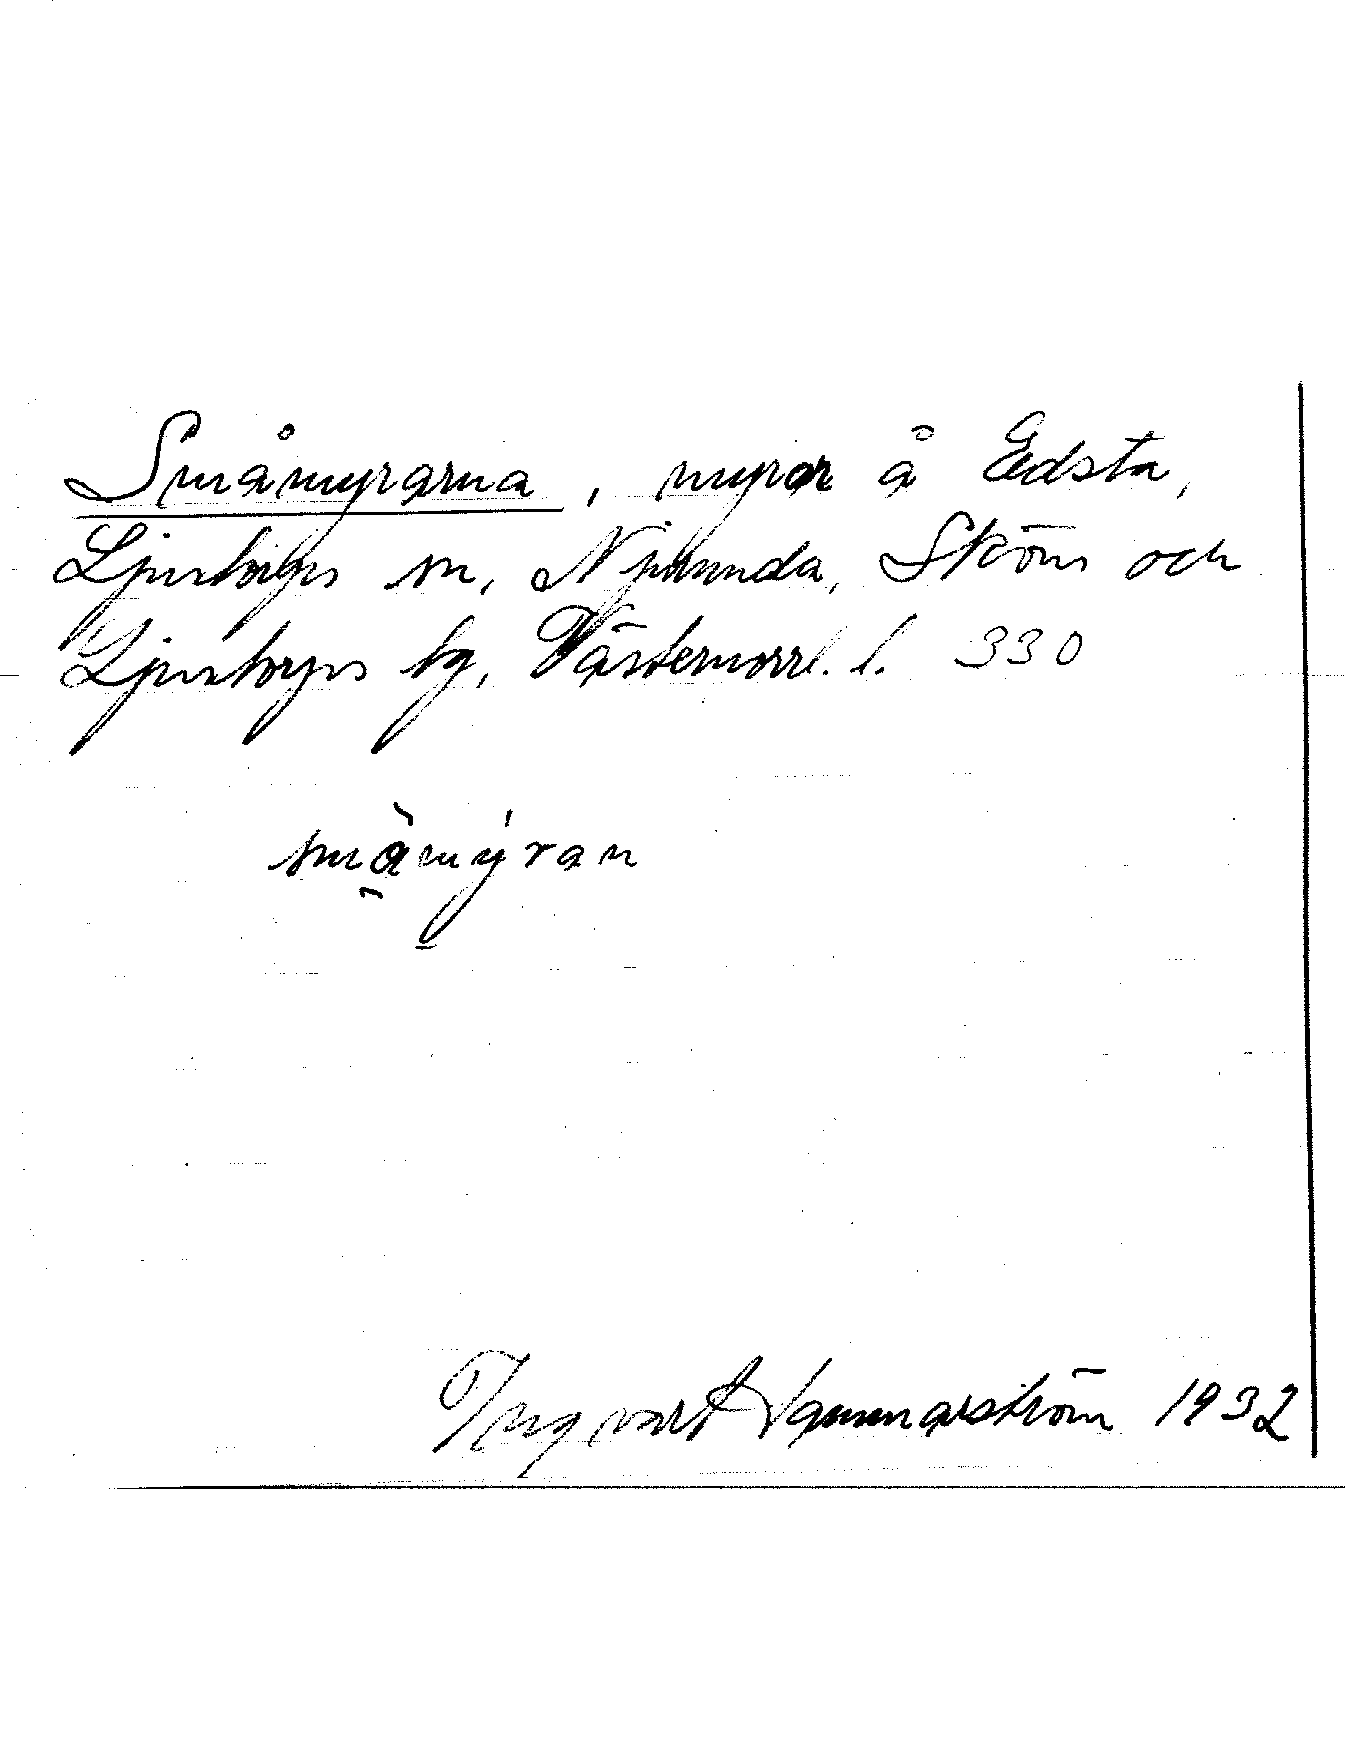 Småmyrarna, myrar å Edsta,
Ljustorps sn, Njurunda, Sköns och
Ljustorps tg, Västernorrl. l. 330
småmyran
Ingvart Vannarström 1932